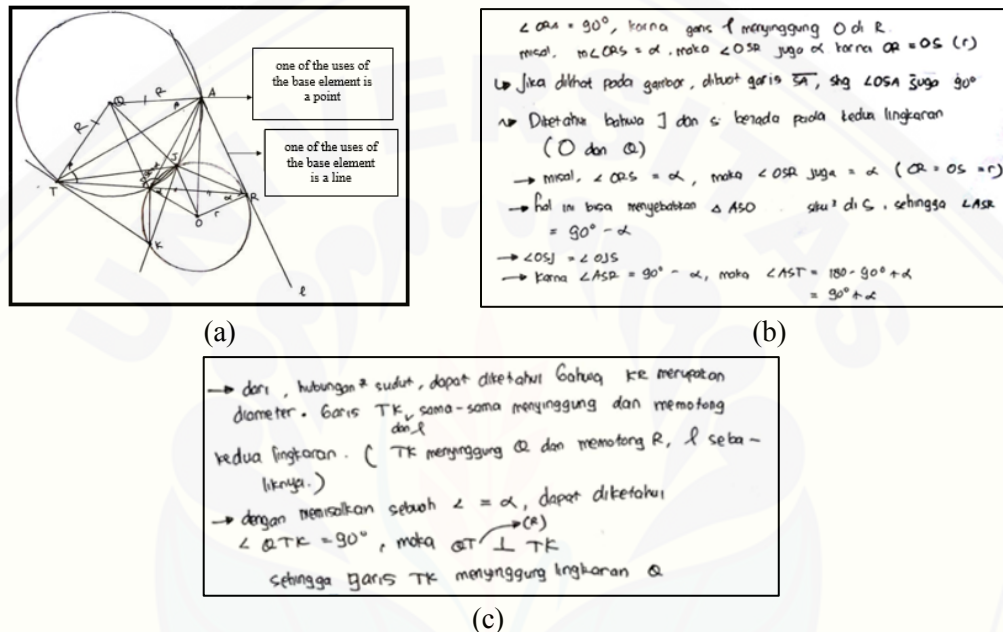 one of the uses of
the base element is
a point
one of the uses of
the base element
is a line
Q
R
A
R
T
J
R
O
r
K
l
α
(a)
∠ORA = 90°, karna garis l menyinggung O di R.
misal, m∠ORS = α, maka ∠OSR juga α karna OR = OS (r)
↳ Jika dilihat pada gambar, dibuat garis SA, shg ∠OSA juga 90°
Diketahui bahwa J dan S berada pada kedua lingkaran
(O dan Q)
→ misal, ∠ORS = α, maka ∠OSR juga = α (OR = OS = r)
→ hal ini bisa menyebabkan △ASO siku² di S, sehingga ∠ASR
= 90° - α
→ ∠OSJ = ∠OJS
→ Karna ∠ASR = 90° - α, maka ∠AST = 180 - 90° + α
= 90° + α
(b)
→ dari, hubungan² sudut, dapat diketahui bahwa KR merupakan
diameter. Garis TK dan l sama-sama menyinggung dan memotong
kedua lingkaran. ( TK menyinggung Q dan memotong R, l seba-
liknya.)
→ dengan memisalkan sebuah ∠ = α, dapat diketahui
∠QTK = 90°, maka QT (R) ⊥ TK
sehingga garis TK menyinggung lingkaran Q
(c)
UNIVERSITAS